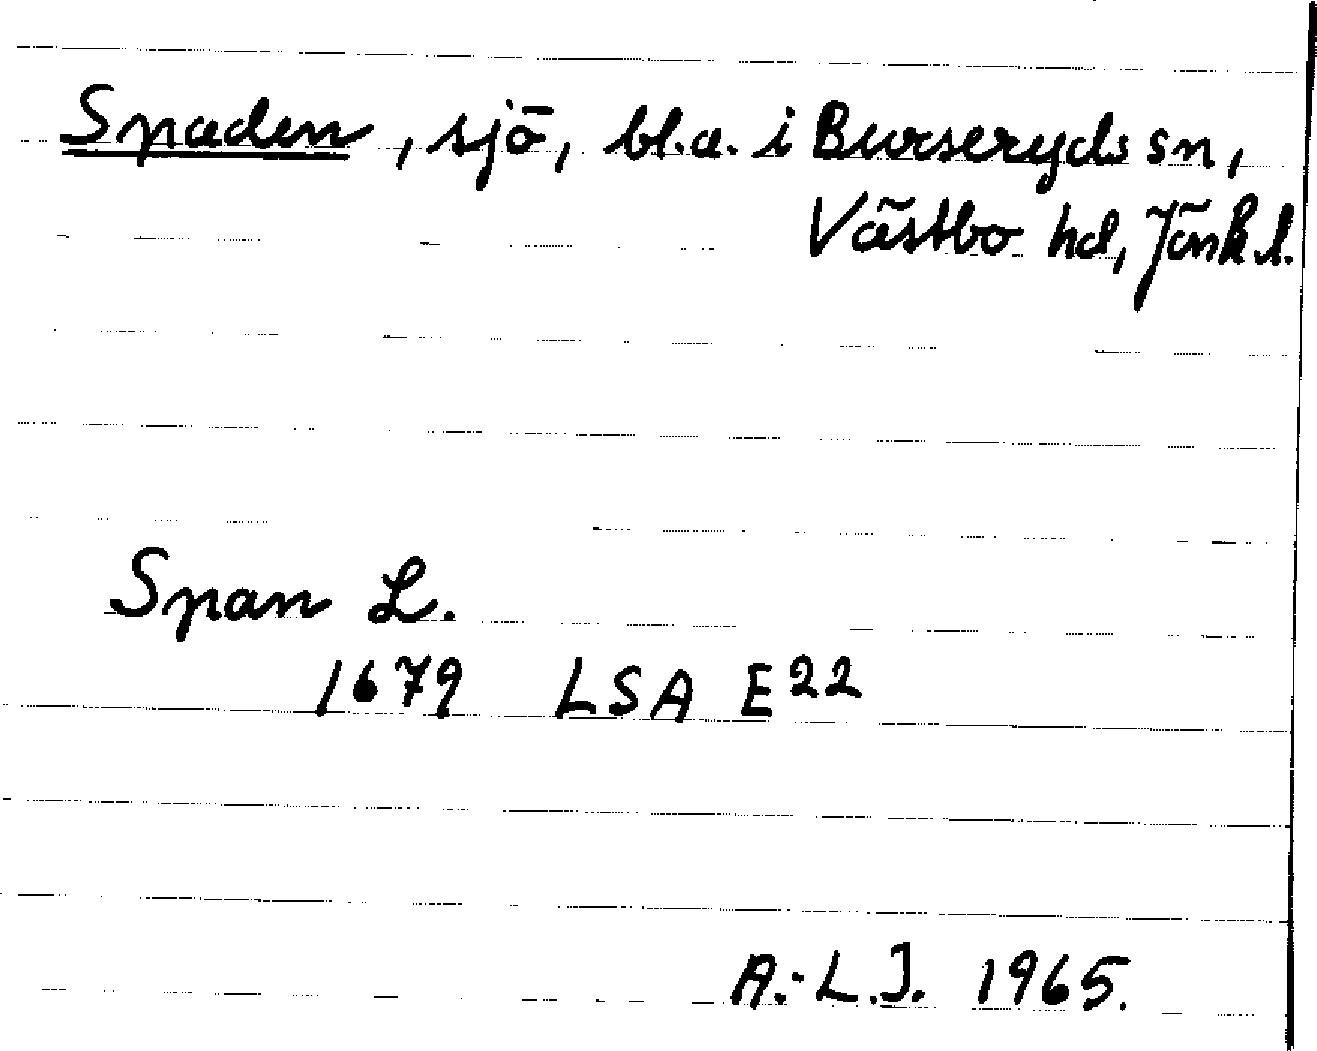 Spaden, sjö, bl.a. i Burseryds sn,
Västbo hd, Jönk.l.
Span L.
1679 LSA E22
A.-L.J. 1965.